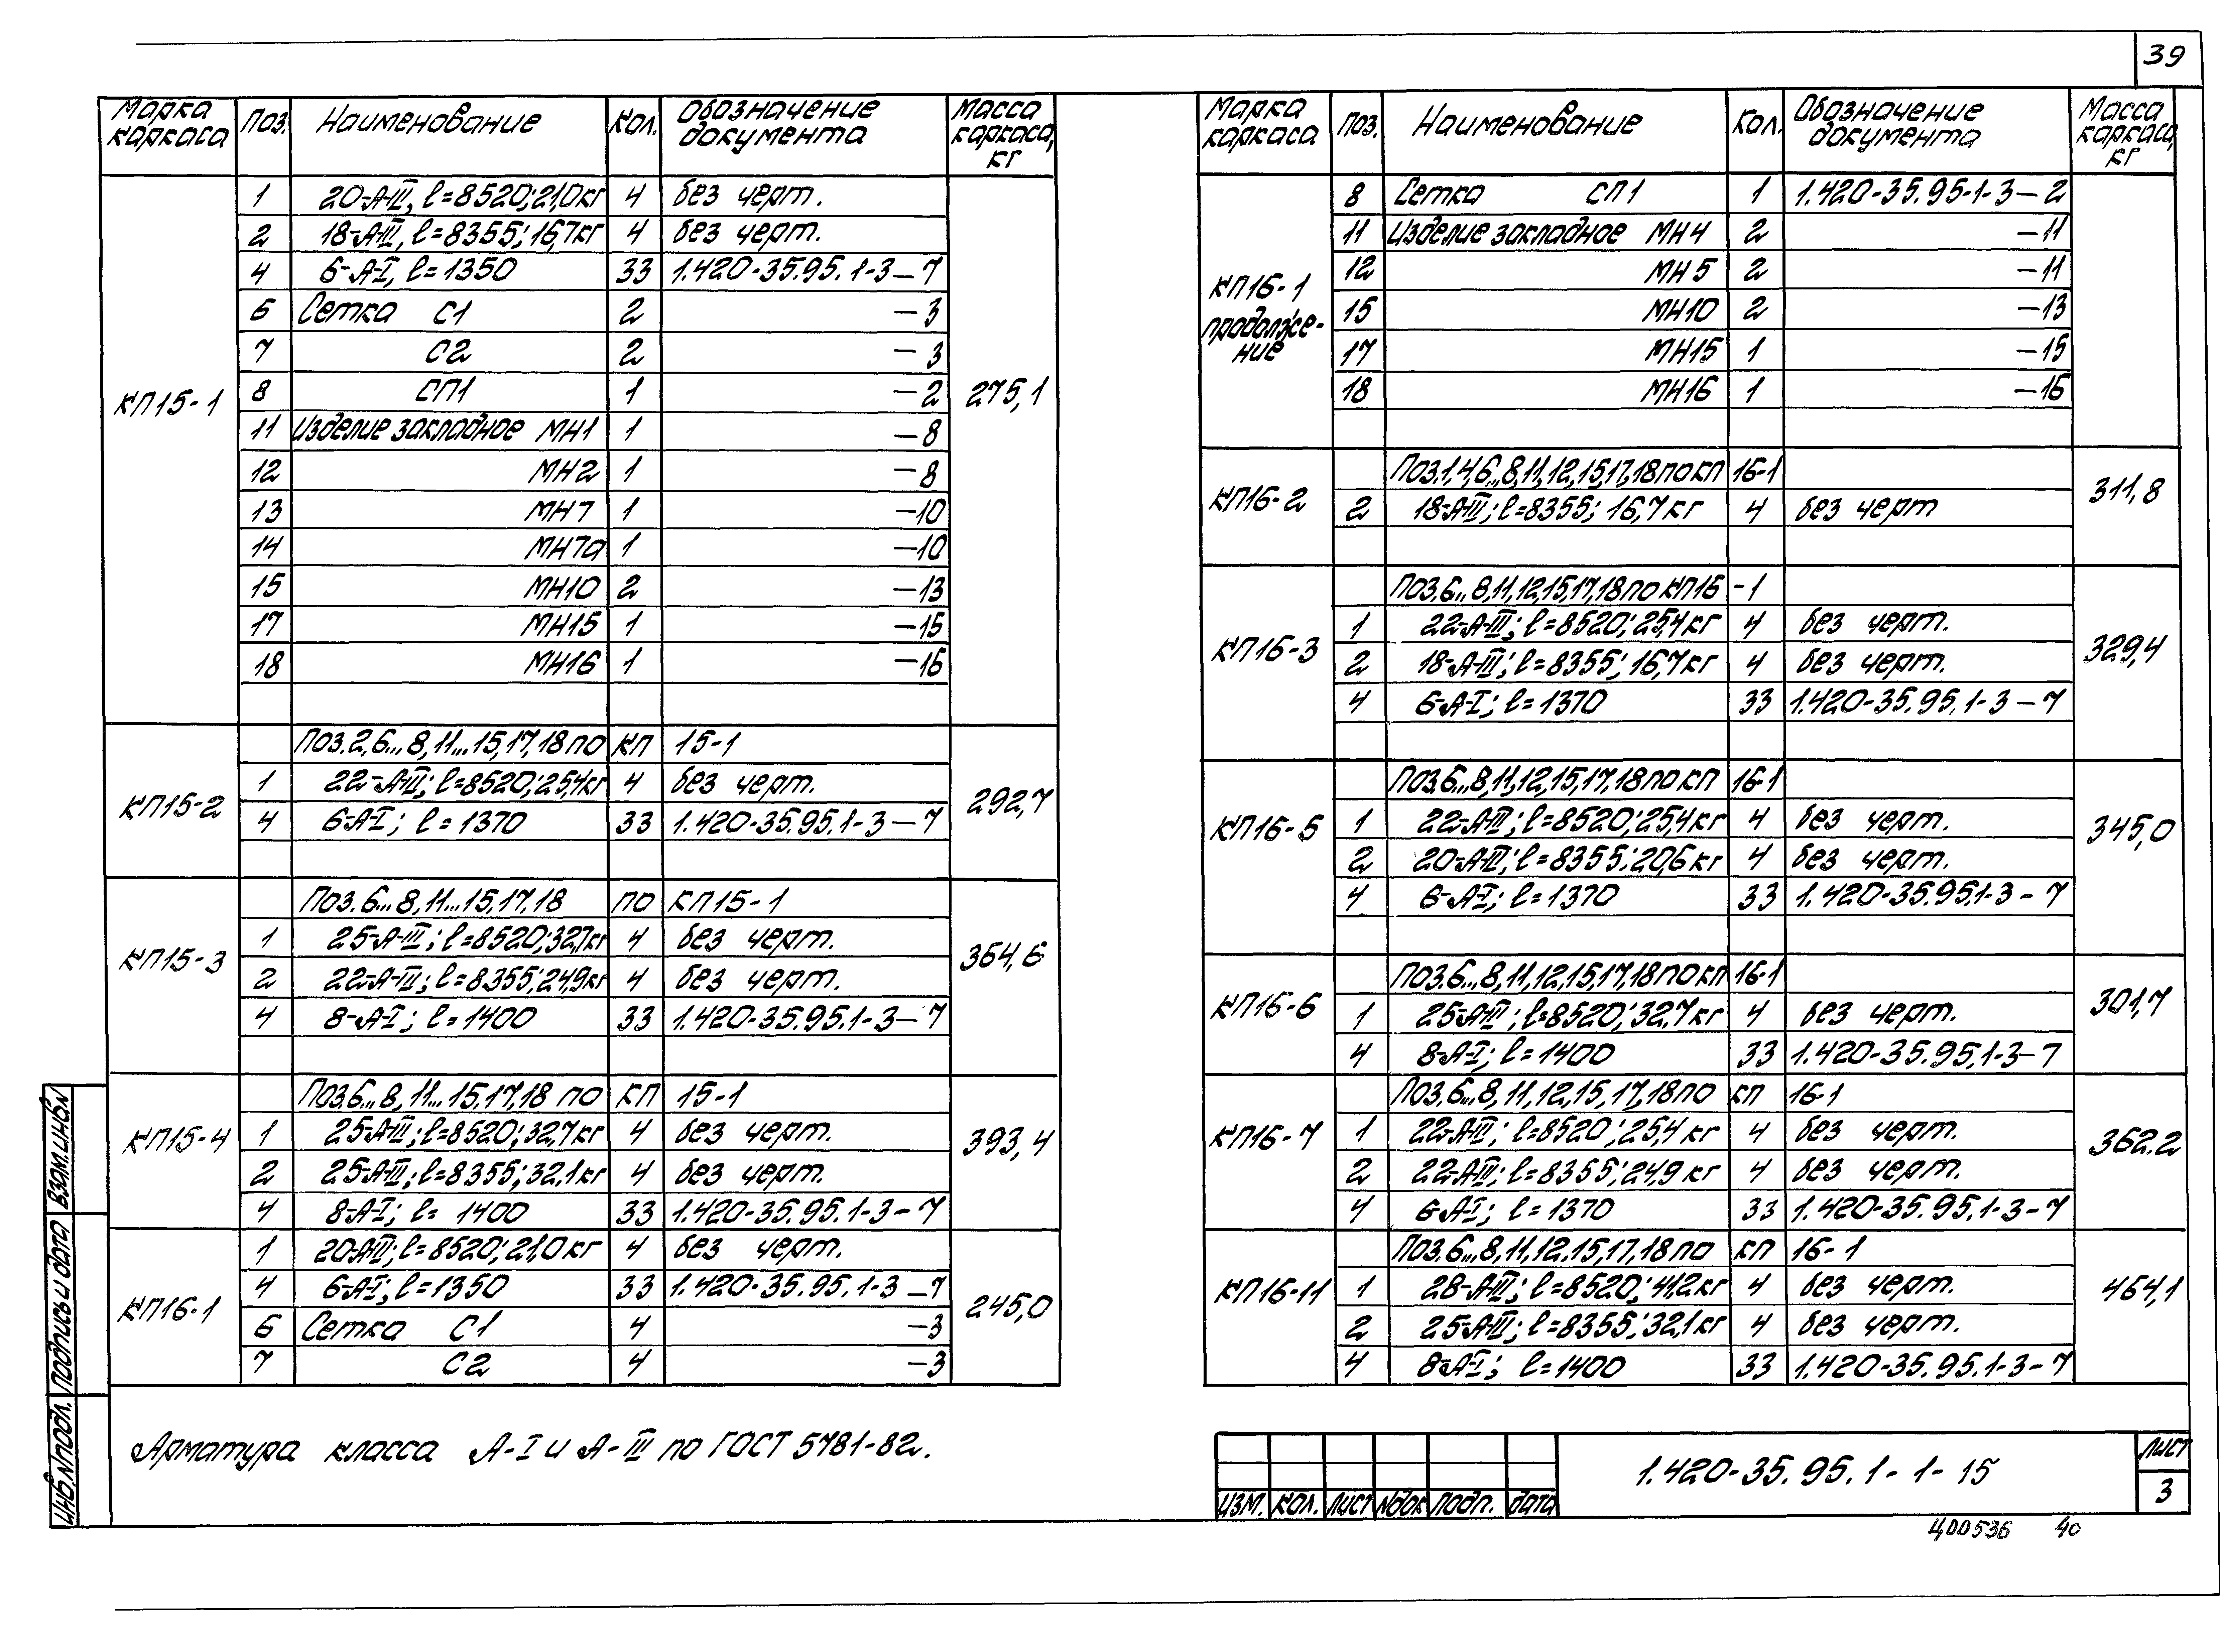 39
Марка каркаса Поз. Наименование Кол. Обозначение документа Масса каркаса, кг
КП15-1 275,1
1 20-А-III, l=8520; 21,0кг 4 без черт.
2 18-А-III, l=8355; 16,7кг 4 без черт.
4 6-А-I, l=1350 33 1.420-35.95.1-3-7
6 Сетка С1 2 -3
7 С2 2 -3
8 СП1 1 -2
11 Изделие закладное МН1 1 -8
12 МН2 1 -8
13 МН7 1 -10
14 МН7а 1 -10
15 МН10 2 -13
17 МН15 1 -15
18 МН16 1 -16
КП15-2 292,7
Поз.2,6...8,11...15,17,18 по КП 15-1
1 22-А-III; l=8520; 25,4кг 4 без черт.
4 6-А-I; l=1370 33 1.420-35.95.1-3-7
КП15-3 364,6
Поз.6...8,11...15,17,18 по КП15-1
1 25-А-III; l=8520; 32,7кг 4 без черт.
2 22-А-III; l=8355; 24,9кг 4 без черт.
4 8-А-I; l=1400 33 1.420-35.95.1-3-7
КП15-4 393,4
Поз.6...8,11...15,17,18 по КП 15-1
1 25-А-III; l=8520; 32,7кг 4 без черт.
2 25-А-III; l=8355; 32,1кг 4 без черт.
4 8-А-I; l=1400 33 1.420-35.95.1-3-7
КП16-1 245,0
1 20-А-III; l=8520; 21,0кг 4 без черт.
4 6-А-I; l=1350 33 1.420-35.95.1-3-7
6 Сетка С1 4 -3
7 С2 4 -3
Марка каркаса Поз. Наименование Кол. Обозначение документа Масса каркаса, кг
КП16-1 продолже-ние
8 Сетка СП1 1 1.420-35.95-1-3-2
11 Изделие закладное МН4 2 -11
12 МН5 2 -11
15 МН10 2 -13
17 МН15 1 -15
18 МН16 1 -16
КП16-2 311,8
Поз.1,4,6...8,11,12,15,17,18 по КП 16-1
2 18-А-III; l=8355; 16,7кг 4 без черт
КП16-3 329,4
Поз.6...8,11,12,15,17,18 по КП16-1
1 22-А-III; l=8520; 25,4кг 4 без черт.
2 18-А-III; l=8355; 16,7кг 4 без черт.
4 6-А-I; l=1370 33 1.420-35.95.1-3-7
КП16-5 345,0
Поз.6...8,11,12,15,17,18 по КП 16-1
1 22-А-III; l=8520; 25,4кг 4 без черт.
2 20-А-III; l=8355; 20,6кг 4 без черт.
4 6-А-I; l=1370 33 1.420-35.95.1-3-7
КП16-6 301,7
Поз.6...8,11,12,15,17,18 по КП 16-1
1 25-А-III; l=8520; 32,7кг 4 без черт.
4 8-А-I; l=1400 33 1.420-35.95.1-3-7
КП16-7 362.2
Поз.6...8,11,12,15,17,18 по КП 16-1
1 22-А-III; l=8520; 25,4кг 4 без черт.
2 22-А-III; l=8355; 24,9кг 4 без черт.
4 6-А-I; l=1370 33 1.420-35.95.1-3-7
КП16-11 464,1
Поз.6...8,11,12,15,17,18 по КП 16-1
1 28-А-III; l=8520; 41,2кг 4 без черт.
2 25-А-III; l=8355; 32,1кг 4 без черт.
4 8-А-I; l=1400 33 1.420-35.95.1-3-7
Арматура класса А-I и А-III по ГОСТ 5781-82.
Инв.№подл. Подпись и дата Взам.инв.№
Изм. Кол. Лист №док Подп. Дата
1.420-35.95.1-1-15
Лист
3
Ц00536 40